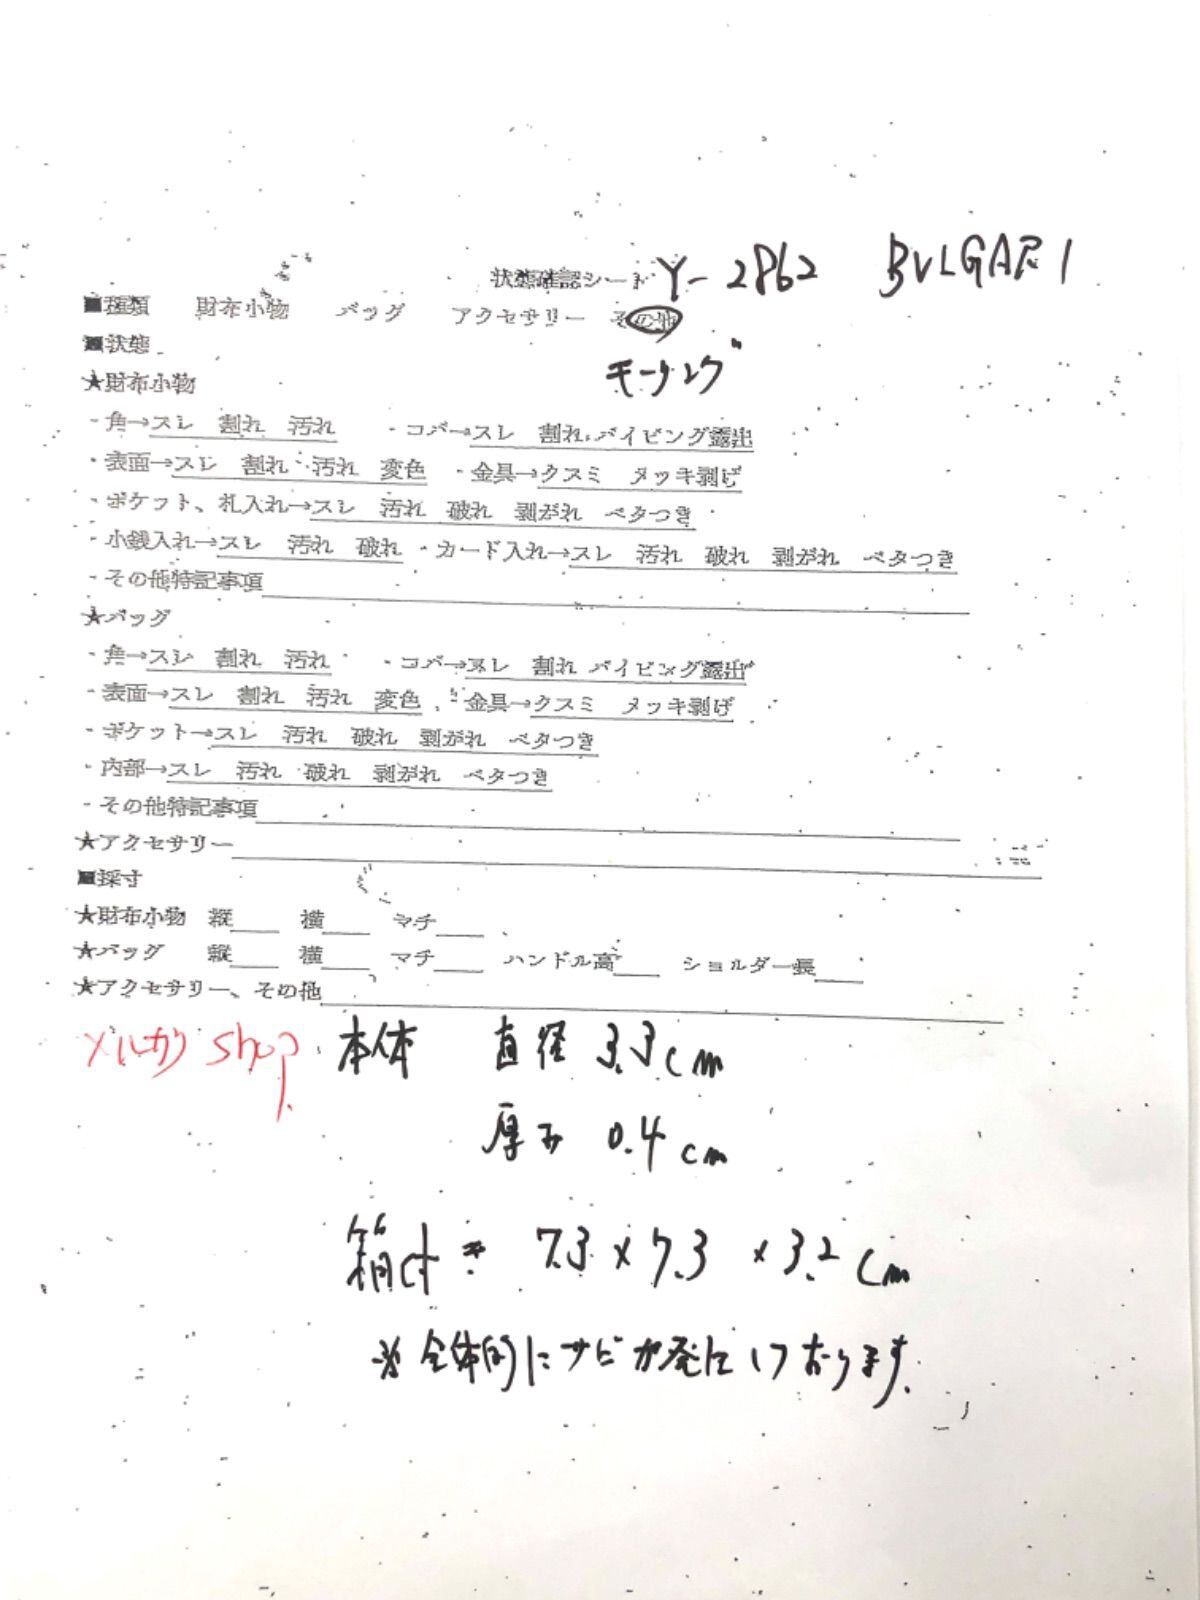 状態確認シート Y-2862 BVLGARI
■種類 財布小物 バッグ アクセサリー その他
■状態 モーリング
★財布小物
・角→スレ 割れ 汚れ ・コバ→スレ 割れ パイピング露出
・表面→スレ 割れ 汚れ 変色 ・金具→クスミ メッキ剥げ
・ポケット、札入れ→スレ 汚れ 破れ 剥がれ ベタつき
・小銭入れ→スレ 汚れ 破れ ・カード入れ→スレ 汚れ 破れ 剥がれ ベタつき
・その他特記事項
★バッグ
・角→スレ 割れ 汚れ ・コバ→スレ 割れ パイピング露出
・表面→スレ 割れ 汚れ 変色 ・金具→クスミ メッキ剥げ
・ポケット→スレ 汚れ 破れ 剥がれ ベタつき
・内部→スレ 汚れ 破れ 剥がれ ベタつき
・その他特記事項
★アクセサリー
■採寸
★財布小物 縦 横 マチ
★バッグ 縦 横 マチ ハンドル高 ショルダー長
★アクセサリー、その他
メルカリ shop 本体 直径 3.3cm
厚み 0.4cm
箱付き 7.3×7.3×3.2cm
※全体的にサビが発生しております。